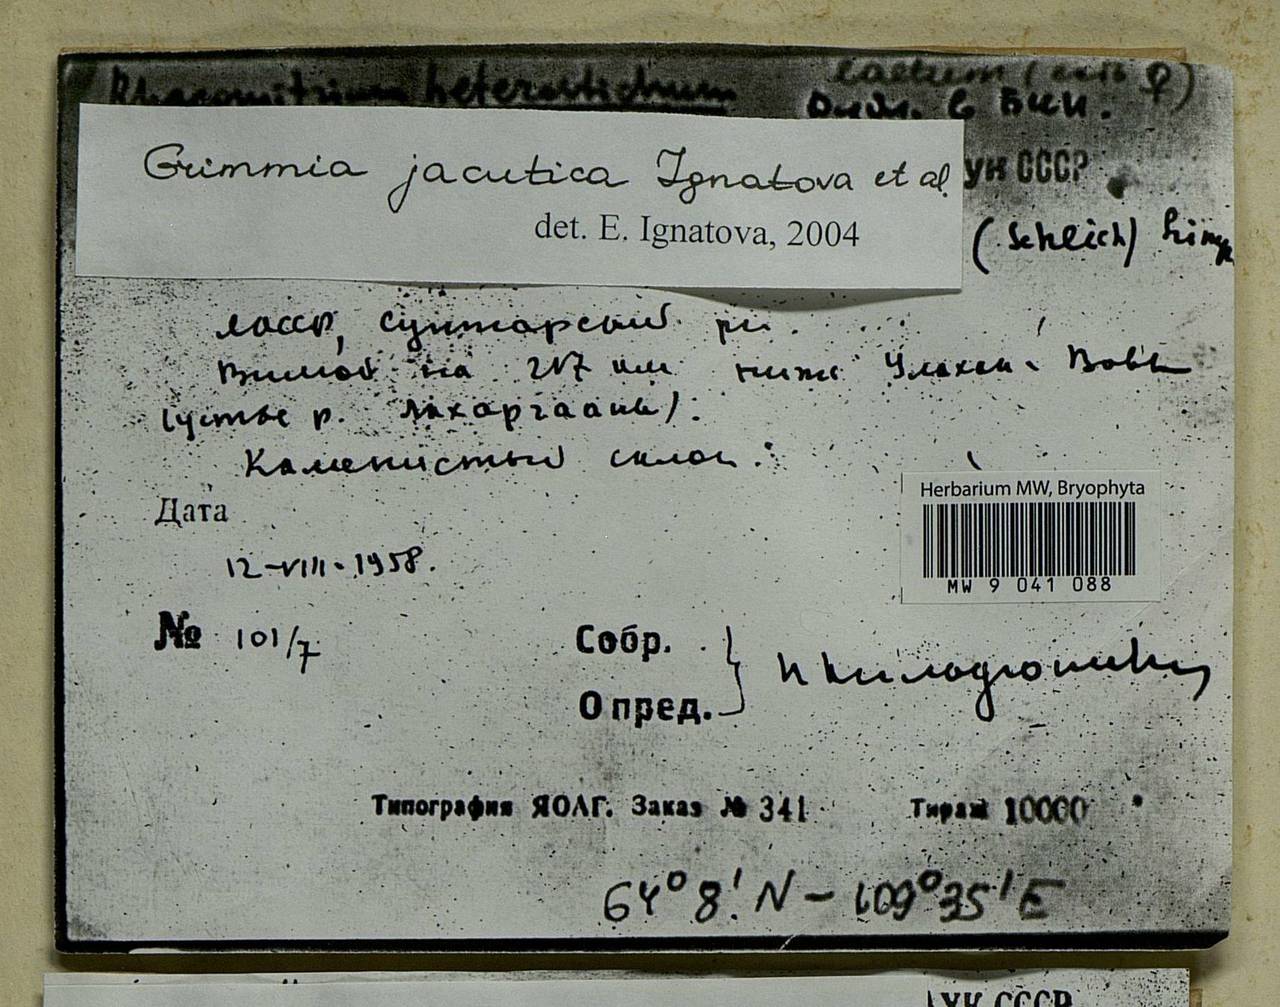 Rhacomitrium heterostichum
laetum (
♀)
в Бин.
ук СССР
Grimmia jacutica Ignatova et al
det. E. Ignatova, 2004
(Schleich)
ЯАССР, Сунтарский рн.
Вилюй на 217 км ниже Улахан
(устье р.
Каменистый склон.
Herbarium MW, Bryophyta
MW 9 041 088
Дата
12-VIII-1958.
№ 101/7
Собр.
Опред.
Типография ЯОЛГ. Заказ № 341 Тираж 10000
64°8' N - 109°35' E
УК СССР